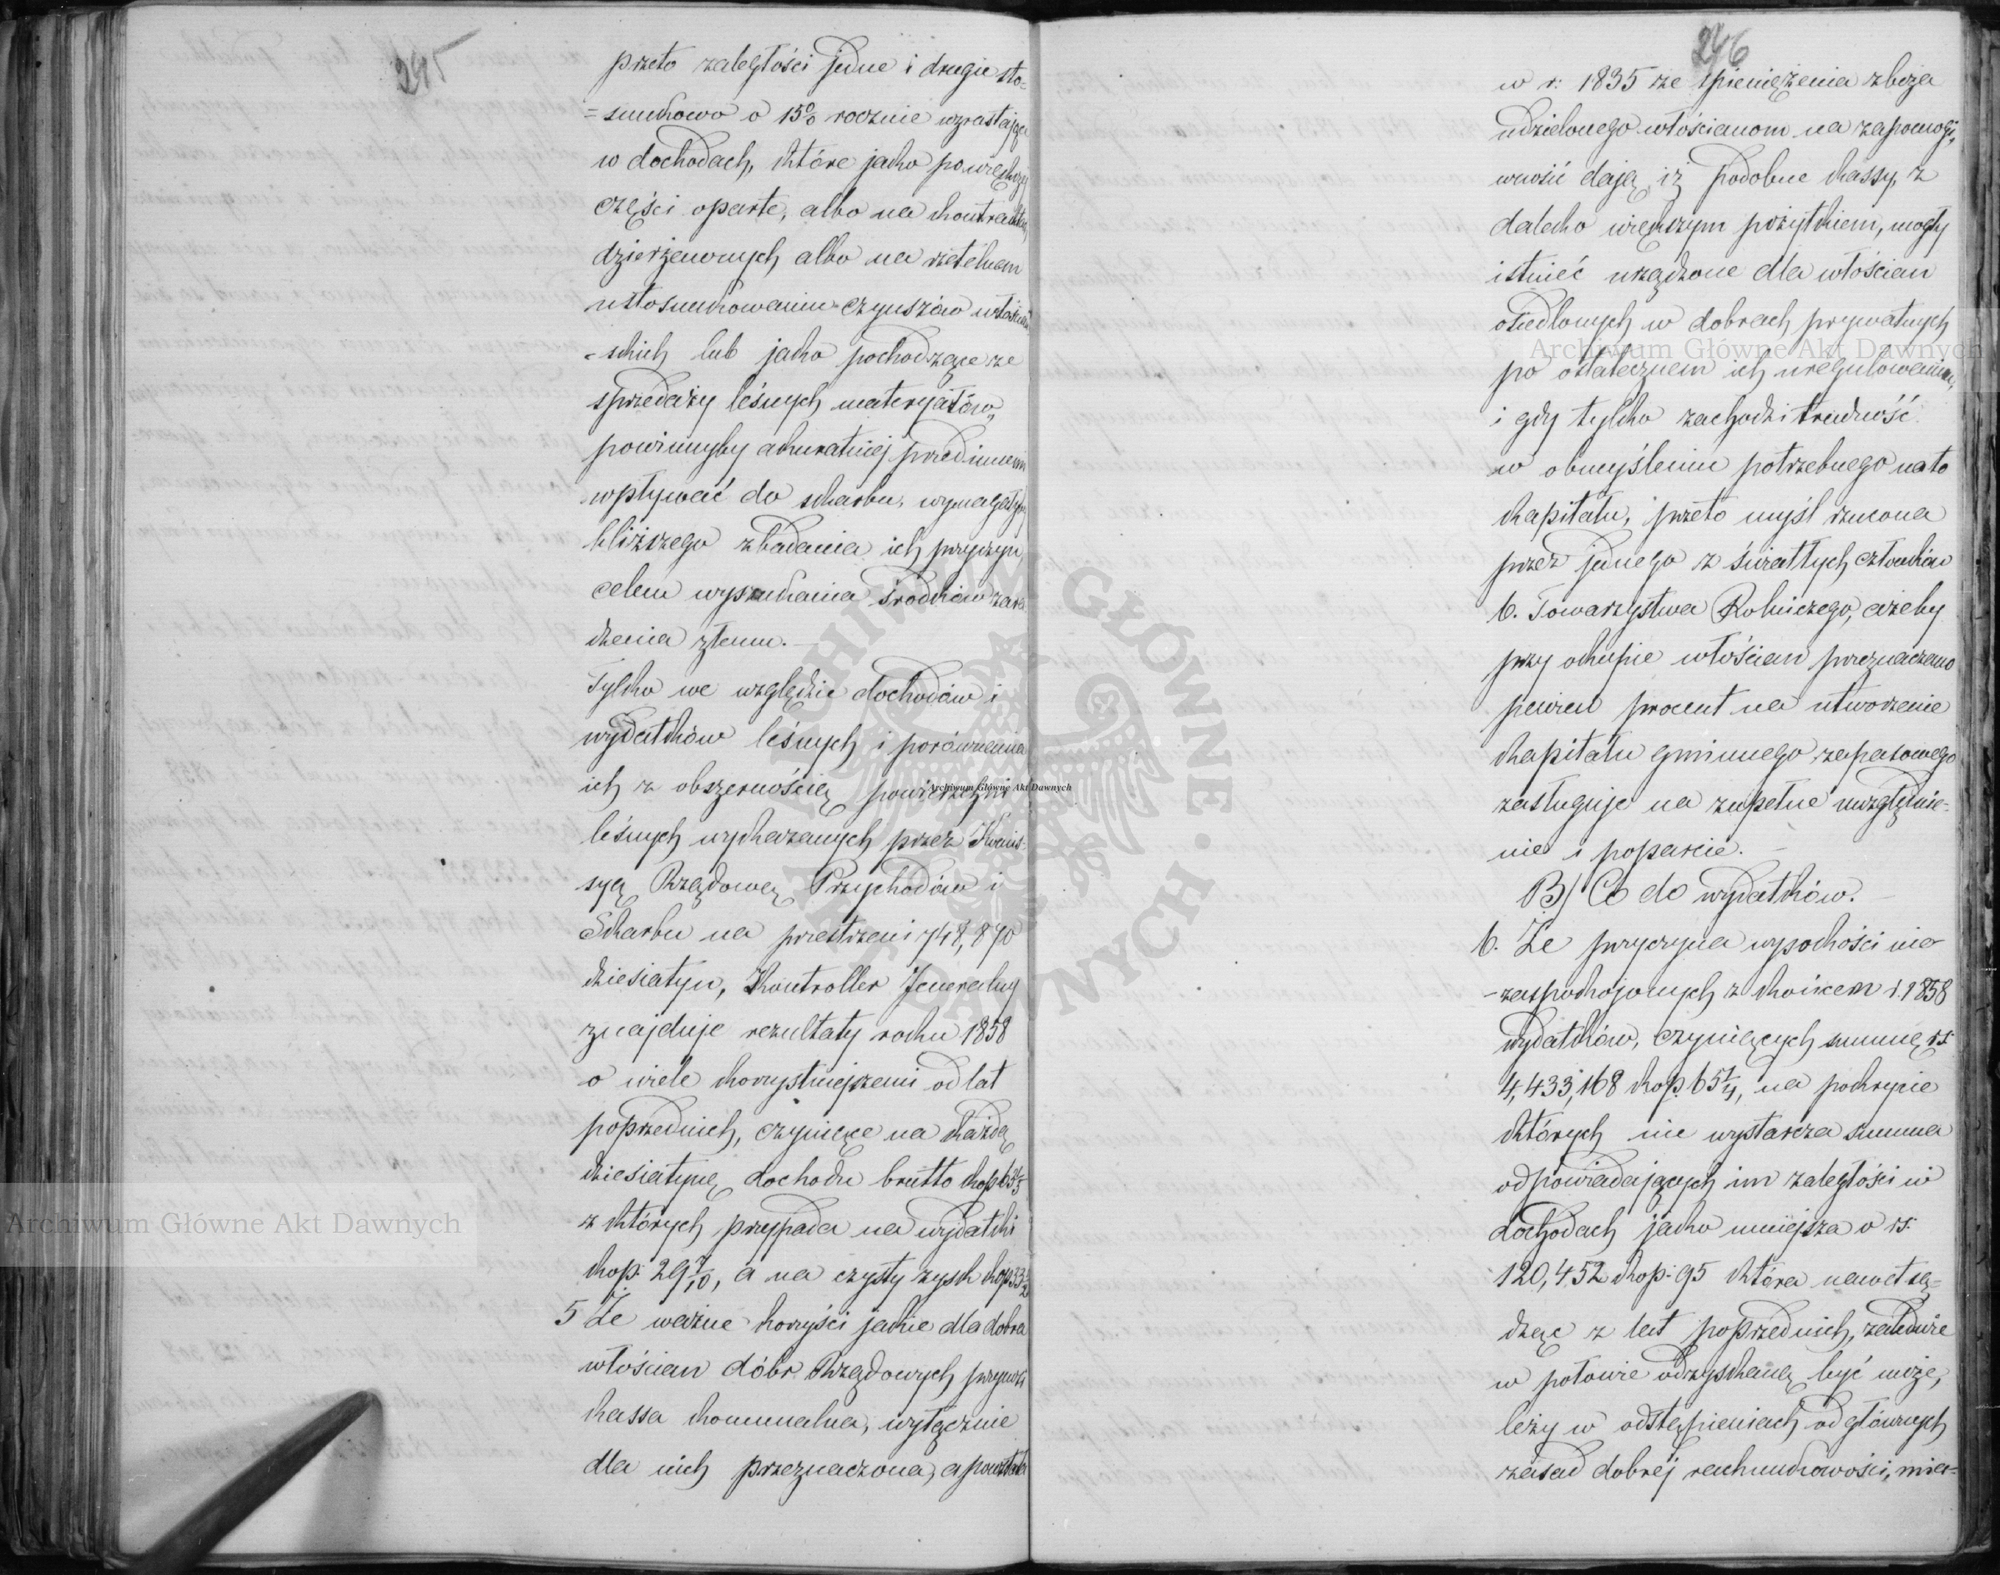 245
przeto zaległości jedne i drugie sto-
=sunkowo o 15% rocznie wzrastające
w dochodach, które jako powiększej
części oparte, albo na kontraktach
dzierżawnych albo na rzetelnem
ustosunkowaniu czynszów włościań
-skich lub jako pochodzące ze
sprzedaży leśnych materyałów,
powinnyby akuratniej przed innemi
wpływać do skarbu, wymagałyby
bliższego zbadania ich przyczyn
celem wyszukania środków zara
dzenia złemu.
Tylko we względzie dochodów i
wydatków leśnych i porównania
ich z obszernością powierzchni
leśnych wykazanych przez Kommis-
syą Rządową Przychodów i
Skarbu na przestrzeni 748,870
dziesiatyn, Kontroller Jeneralny
znajduje rezultaty roku 1858
o wiele korzystniejszemi od lat
poprzednich, czyniące na każdą
dziesiatynę dochodu brutto kop
z których przypada na wydatki
kop: 29 7/10, a na czysty zysk kop 33
5 Że ważne korzyści jakie dla dobra
włościan dóbr Rządowych przynosi
kassa kommunalna, wyłącznie
dla nich przeznaczona, a powstała
246
w r: 1835 ze spieniężenia zboża
udzielonego włościanom na zapomogi,
wnosić dają iż podobne kassy, z
daleko większym pożytkiem, mogły
istnieć urządzone dla włościan
osiedlonych w dobrach prywatnych
po ostatecznem ich uregulowaniu,
i gdy tylko zachodzi trudność
w obmyśleniu potrzebnego na to
kapitału, przeto myśl rzucona
przez jednego z światłych członków
b. Towarzystwa Rolniczego, ażeby
przy okupie włościan przeznaczano
pewien procent na utworzenie
kapitału gminnego zapasowego
zasługuje na zupełne uwzględnie-
nie i poparcie.
B/ Co do wydatków.
6. Że przyczyna wysokości nie-
-zaspokojonych z końcem r. 1858
wydatków, czyniących summę rs
4,433,168 kop. 65 1/4, na pokrycie
których nie wystarcza summa
odpowiadających im zaległości w
dochodach jako mniejsza o rs.
120,452 kop: 95 która nawet są-
dząc z lat poprzednich, zaledwie
w połowie odzyskaną być może,
leży w odstąpieniach od głównych
zasad dobrej rachunkowości, mia-
Archiwum Główne Akt Dawnych
Archiwum Główne Akt Dawnych
Archiwum Główne Akt Dawnych
ARCHIWUM GŁÓWNE AKT DAWNYCH